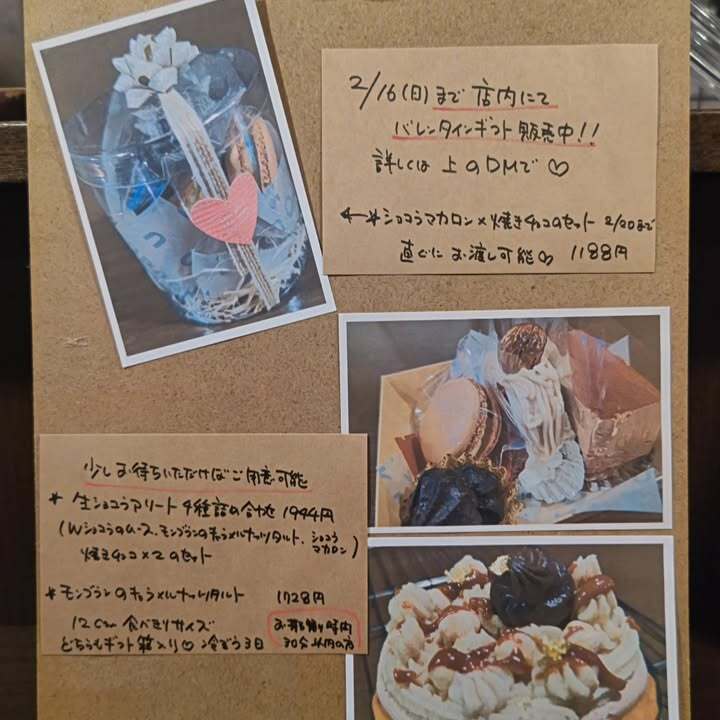 2/16(日)まで 店内にて
バレンタインギフト 販売中!!
詳しくは 上のDMで♡
←* ショコラマカロン×焼きチョコのセット 2/20まで
直ぐに お渡し可能♡ 1188円
少しお待ちいただければご用意可能
* 生ショコラアソート 4種詰め合わせ 1944円
(Wショコラのムース、モンブランのキャラメルナッツタルト、ショコラマカロン)
焼きチョコ×2のセット
* モンブランのキャラメルナッツタルト 1728円
12cm 食べきりサイズ
どちらもギフト箱入り♡ 冷ぞう3日
お持ち帰り時間
30分以内の方